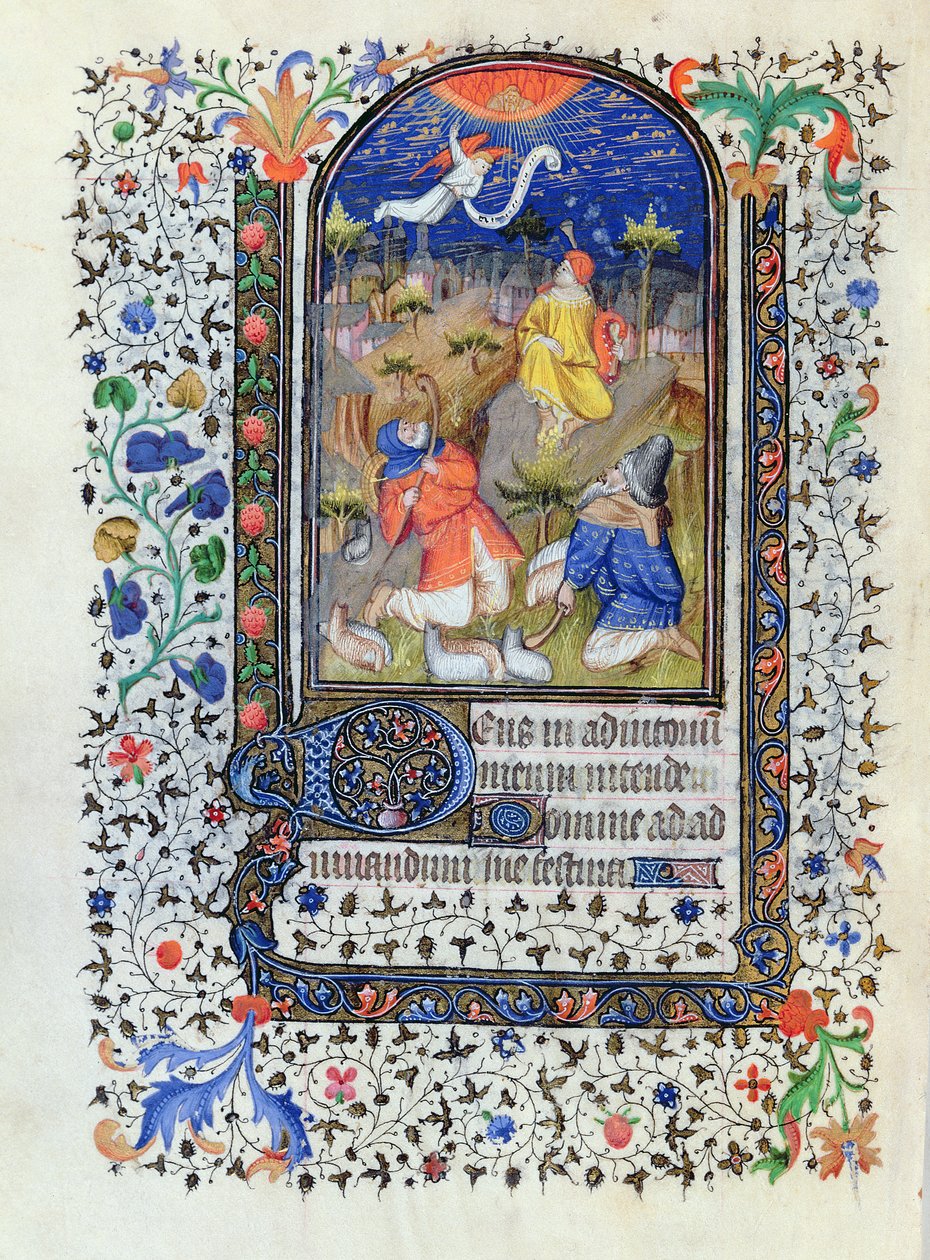 Deus in adiutoriũ
meum intende
Domine ad ad
iuuandum me festina